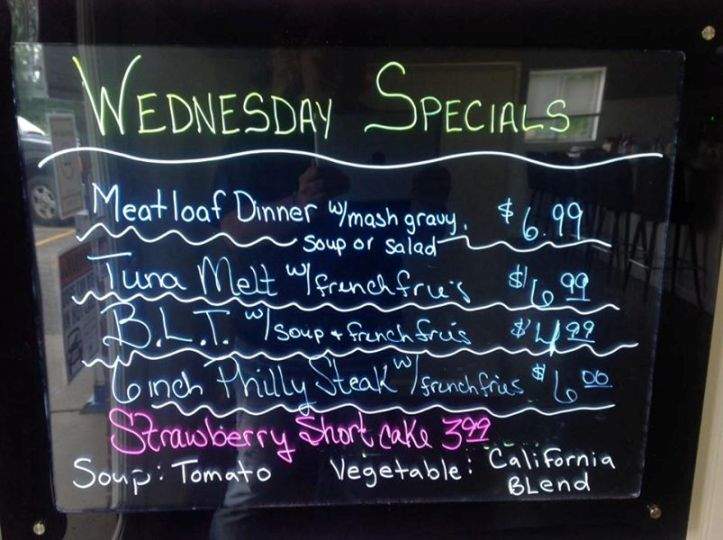 WEDNESDAY SPECIALS
Meatloaf Dinner w/mash gravy, $6.99
soup or salad
Tuna Melt w/frenchfries $6.99
B.L.T. w/soup + french fries $4.99
6 inch Philly Steak w/frenchfries $6.00
Strawberry Short cake 3.99
Soup: Tomato Vegetable: California
BLend